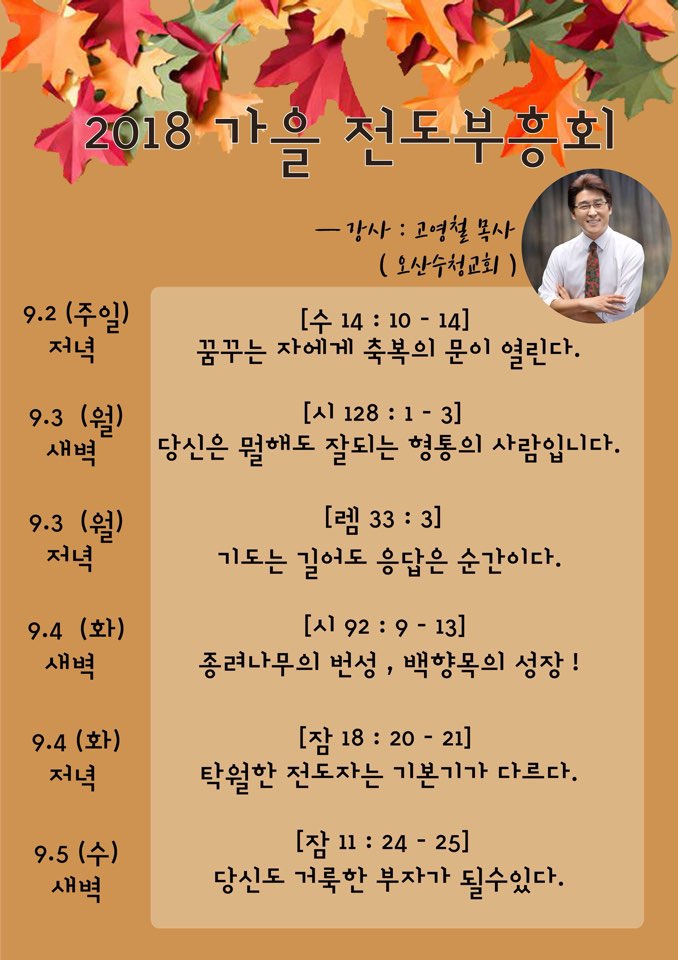 2018 가을 전도부흥회
— 강사 : 고영철 목사
( 오산수청교회 )
9.2 (주일)
저녁
[수 14 : 10 - 14]
꿈꾸는 자에게 축복의 문이 열린다.
9.3 (월)
새벽
[시 128 : 1 - 3]
당신은 뭘해도 잘되는 형통의 사람입니다.
9.3 (월)
저녁
[렘 33 : 3]
기도는 길어도 응답은 순간이다.
9.4 (화)
새벽
[시 92 : 9 - 13]
종려나무의 번성 , 백향목의 성장 !
9.4 (화)
저녁
[잠 18 : 20 - 21]
탁월한 전도자는 기본기가 다르다.
9.5 (수)
새벽
[잠 11 : 24 - 25]
당신도 거룩한 부자가 될수있다.